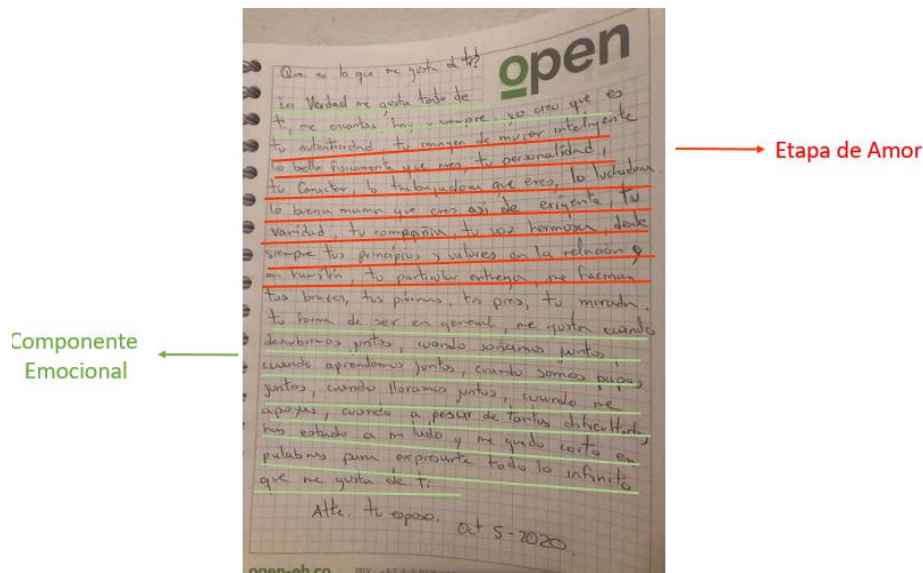 open
Que es lo que me gusta de ti?
La Verdad me gusta todo de
ti, me encantas hoy y siempre, yo creo que es
tu autenticidad tu imagen de mujer inteligente
lo bella fisicamente que eres, tu personalidad,
tu Caracter, lo trabajadora que eres, lo luchadora
lo buena mamá que eres asi de exigente, tu
vanidad, tu compañia, tu voz hermosa, desde
siempre tus principios y valores en la relación y
en familia, tu particular entrega, me fascinan
tus brazos, tus piernas, tus pies, tu mirada.
tu forma de ser en general, me gusta cuando
descubrimos juntos, cuando soñamos juntos,
cuando aprendemos juntos, cuando somos papas
juntos, cuando lloramos juntos, cuando me
apoyas, cuando a pesar de tantas dificultades,
has estado a mi lado y me quedo corto en
palabras para expresarte todo lo infinito
que me gusta de ti
Atte. tu esposo.
Oct 5-2020.
open-eb.co
Etapa de Amor
Componente
Emocional